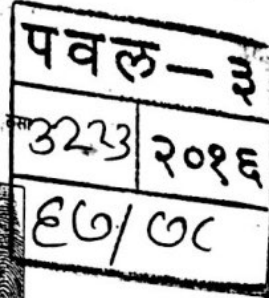 पवल-३
3223 २०१६
६७/७८